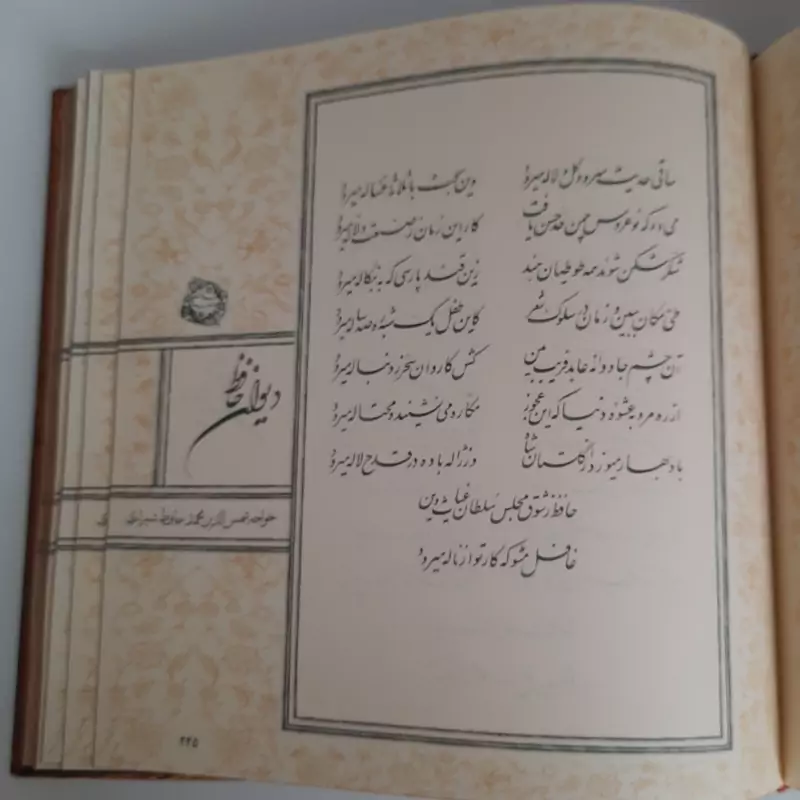 ساقی حدیث سرو و گل و لاله میرود وین بحث با ثلاثه غساله میرود
می ده که نوعروس چمن حد حسن یافت کار این زمان ز صنعت دلاله میرود
شکر شکن شوند همه طوطیان هند زین قند پارسی که به بنگاله میرود
طی مکان ببین و زمان در سلوک شعر کاین طفل یک شبه ره صد ساله میرود
آن چشم جادوانه عابد فریب بین کش کاروان سحر ز دنباله میرود
از ره مرو به عشوه دنیا که این عجوز مکاره می نشیند و محتاله میرود
باد بهار میوزد از گلستان شاه وز ژاله باده در قدح لاله میرود
حافظ ز شوق مجلس سلطان غیاث دین
غافل مشو که کار تو از ناله میرود
دیوان حافظ
خواجه شمس الدین محمد حافظ شیرازی
۲۲۵